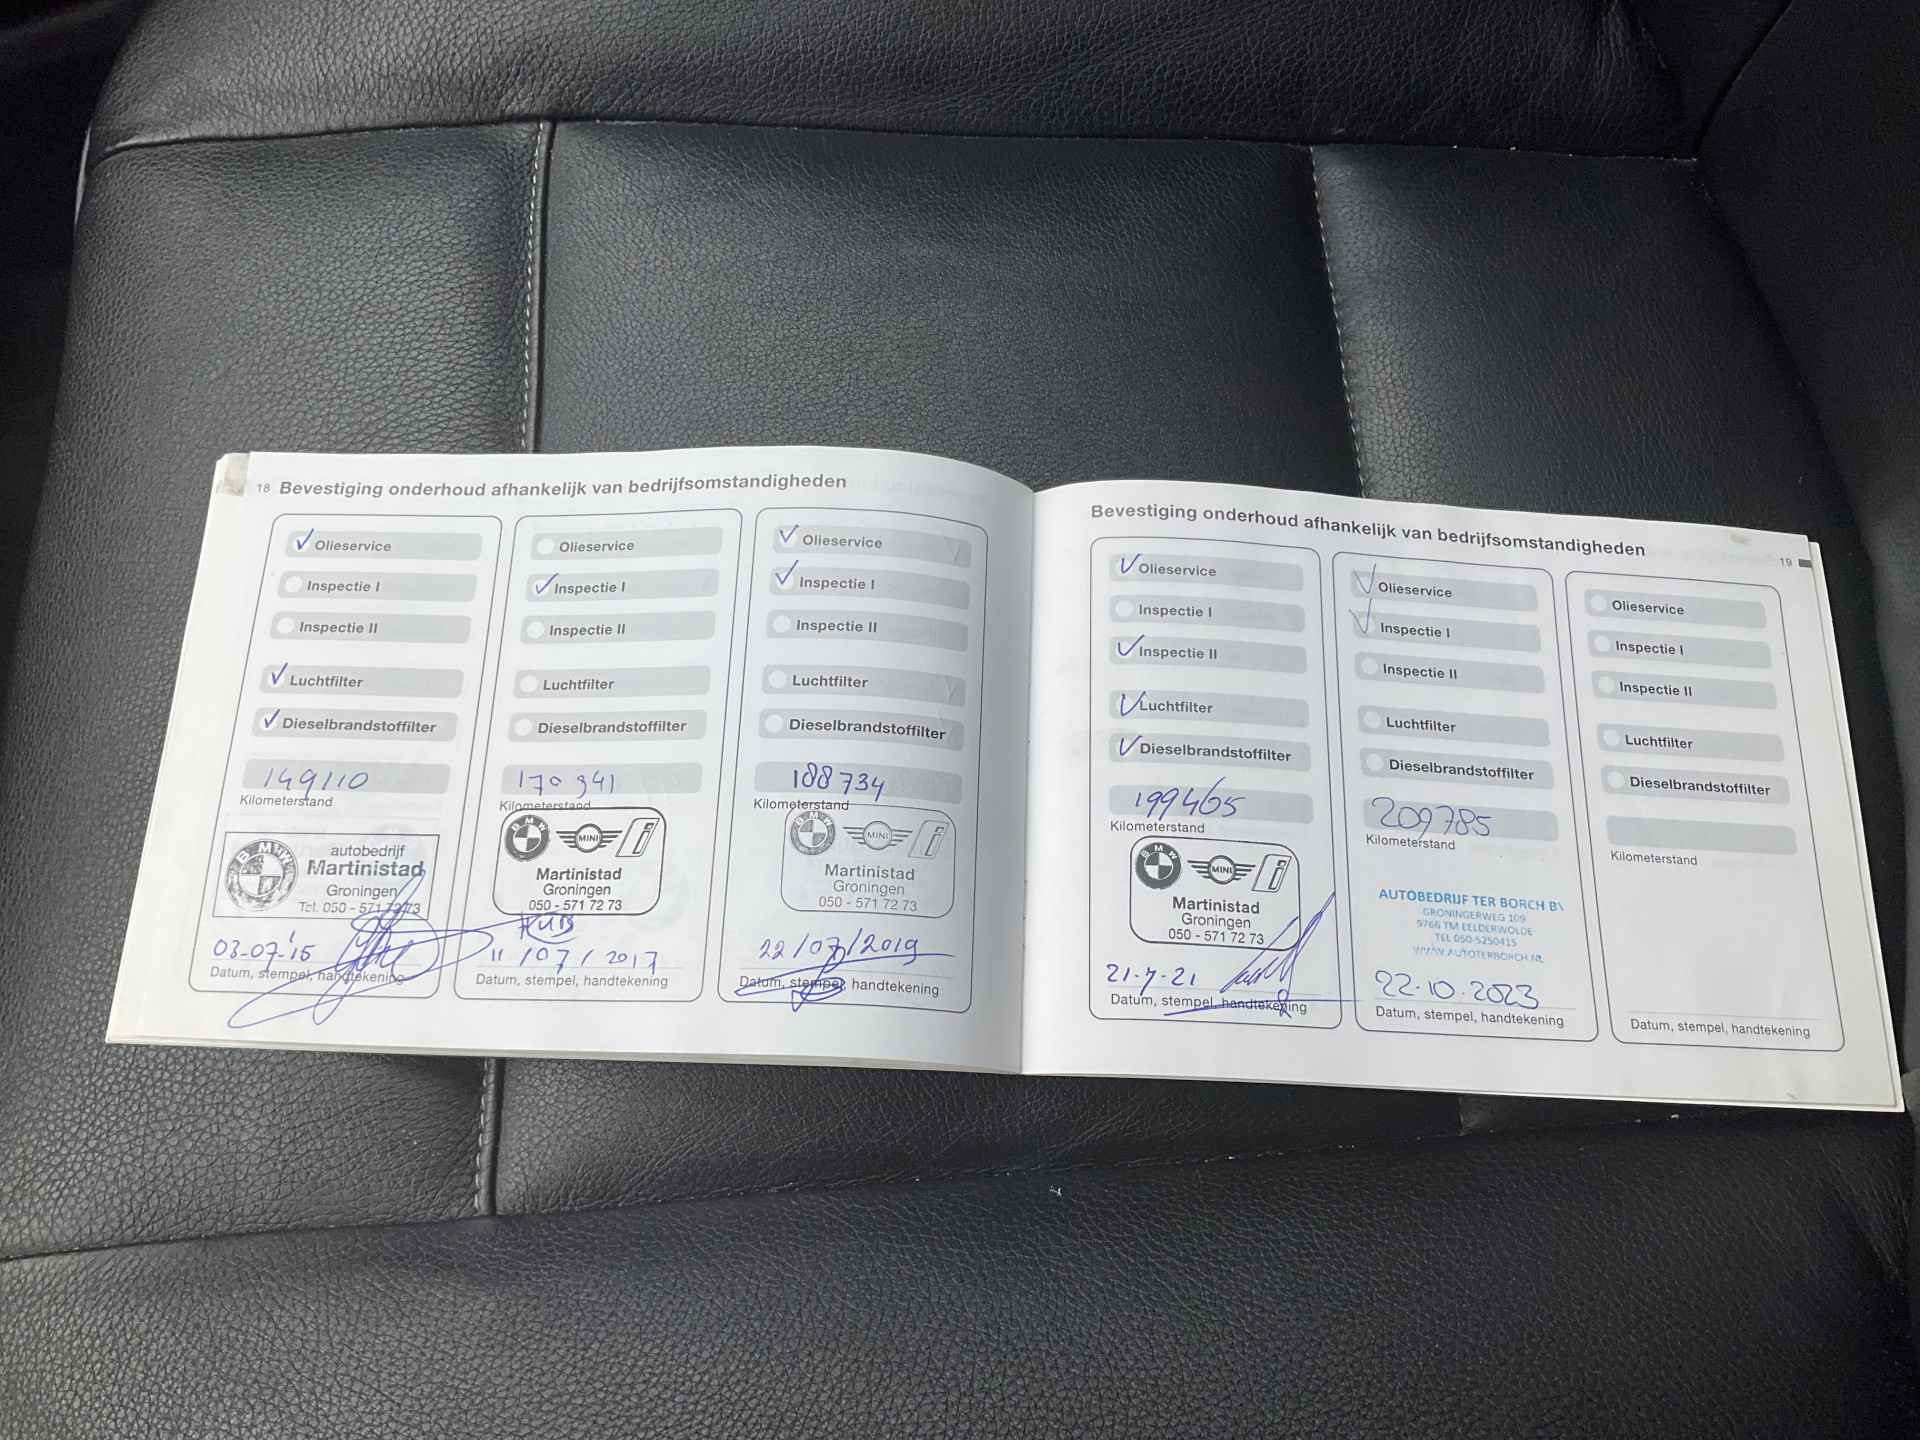 18 Bevestiging onderhoud afhankelijk van bedrijfsomstandigheden
Olieservice
Inspectie I
Inspectie II
Luchtfilter
Dieselbrandstoffilter
149110
Kilometerstand
BMW
autobedrijf
Martinistad
Groningen
Tel. 050 - 571 72 73
03-07-'15
Datum, stempel, handtekening
Olieservice
Inspectie I
Inspectie II
Luchtfilter
Dieselbrandstoffilter
170941
Kilometerstand
BMW MINI i
Martinistad
Groningen
050 - 571 72 73
11/07/2017
Datum, stempel, handtekening
Olieservice
Inspectie I
Inspectie II
Luchtfilter
Dieselbrandstoffilter
188734
Kilometerstand
BMW MINI i
Martinistad
Groningen
050 - 571 72 73
22/07/2019
Datum, stempel, handtekening
Bevestiging onderhoud afhankelijk van bedrijfsomstandigheden
19
Olieservice
Inspectie I
Inspectie II
Luchtfilter
Dieselbrandstoffilter
199465
Kilometerstand
BMW MINI i
Martinistad
Groningen
050 - 571 72 73
21-7-21
Datum, stempel, handtekening
Olieservice
Inspectie I
Inspectie II
Luchtfilter
Dieselbrandstoffilter
209785
Kilometerstand
AUTOBEDRIJF TER BORCH BV
GRONINGERWEG 109
9766 TM EELDERWOLDE
TEL 050-5250415
WWW.AUTOTERBORCH.NL
22-10-2023
Datum, stempel, handtekening
Olieservice
Inspectie I
Inspectie II
Luchtfilter
Dieselbrandstoffilter
Kilometerstand
Datum, stempel, handtekening